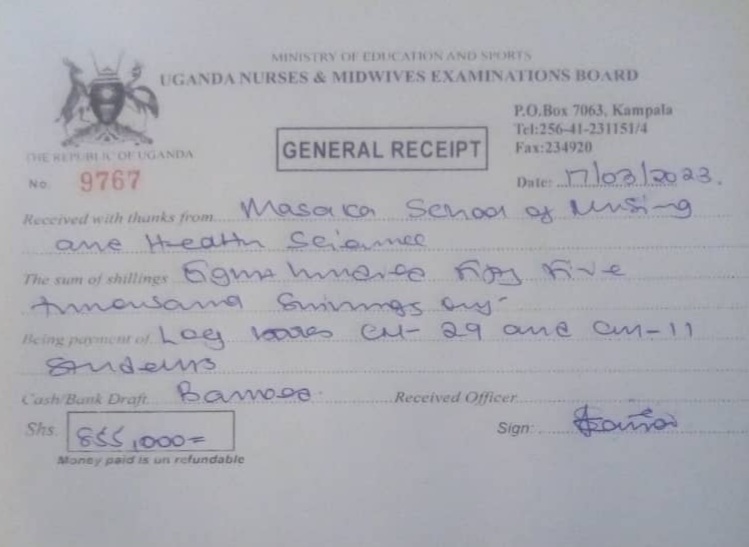 MINISTRY OF EDUCATION AND SPORTS
UGANDA NURSES & MIDWIVES EXAMINATIONS BOARD
P.O.Box 7063, Kampala
Tel:256-41-231151/4
Fax:234920
THE REPUBLIC OF UGANDA
GENERAL RECEIPT
No. 9767
Date: 17/03/2023.
Received with thanks from Masaka School of Nursing
and Health Science
The sum of shillings Eight hundred Fifty Five
thousand Shillings only-
Being payment of Log books CN- 29 and CM-11
Students
Cash/Bank Draft Banked. Received Officer
Shs. 855,000= Sign:
Money paid is un refundable